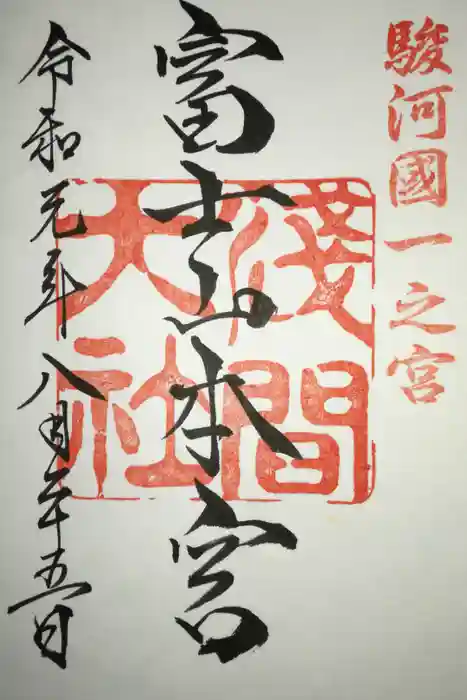 駿河國一之宮
富士山本宮
淺間
大社
令和元年八月廿五日